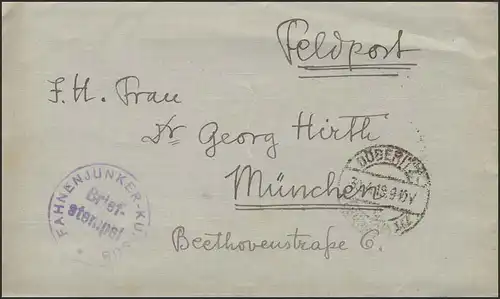 Feldpost
F. H. Frau
Dr Georg Hirth
München
Beethovenstraße 6.
FAHNENJUNKER-KU
Brief-
stempel
DÖBERITZ